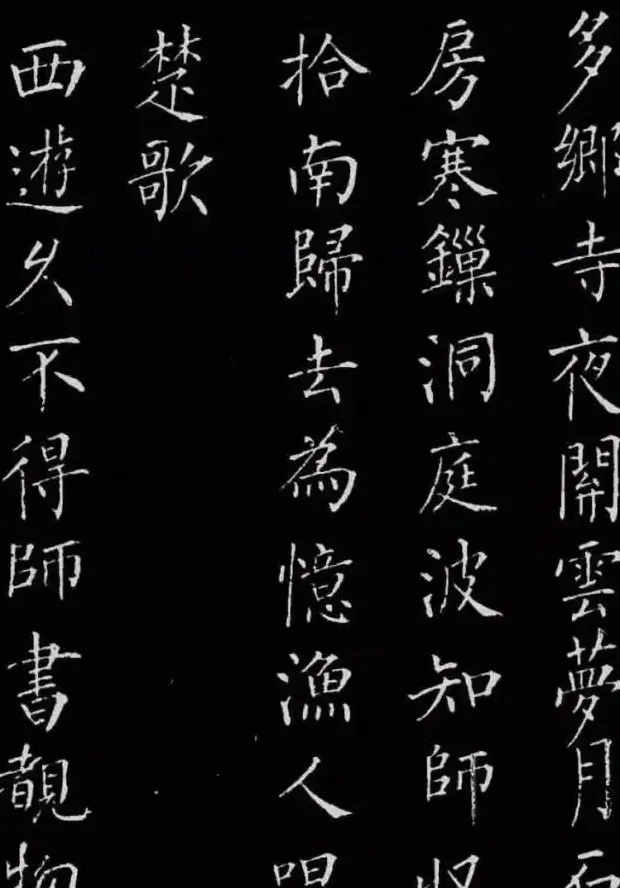 多鄉寺夜開雲夢月石
房寒鏁洞庭波知師收
拾南歸去為憶漁人唱
楚歌
西遊久不得師書覩物